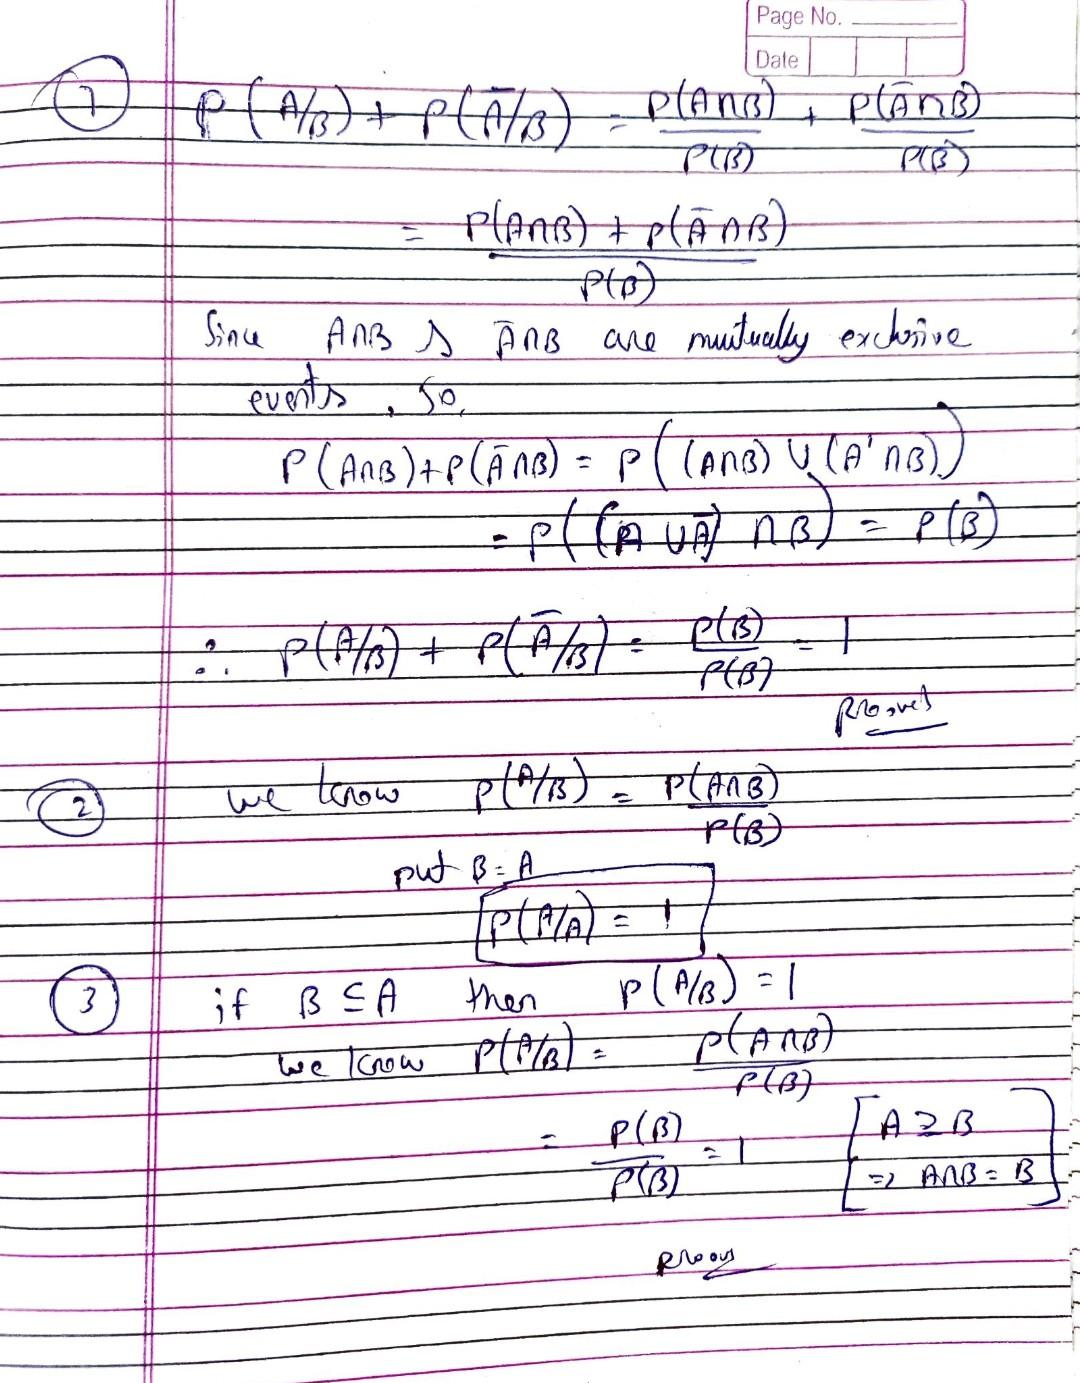 Page No.
Date
1 P(A/B) + P(Ā/B) = P(A∩B)/P(B) + P(Ā∩B)/P(B)
= P(A∩B) + P(Ā∩B) / P(B)
Since A∩B & Ā∩B are mutually exclusive
events, So,
P(A∩B)+P(Ā∩B) = P((A∩B) ∪ (A'∩B))
= P((A ∪ Ā) ∩ B) = P(B)
∴ P(A/B) + P(Ā/B) = P(B)/P(B) = 1
Prooved
2 we know P(A/B) = P(A∩B)/P(B)
put B = A
P(A/A) = 1
3 if B ⊆ A then P(A/B) = 1
we know P(A/B) = P(A∩B)/P(B)
= P(B)/P(B) = 1 [A ⊇ B
⇒ A∩B = B]